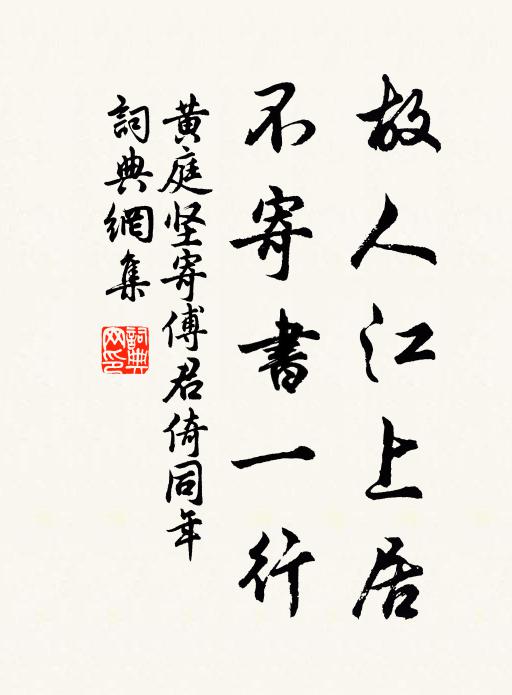 故人江上居
不寄書一行
黄庭坚寄傅君倚同年
詞典網集
詞典
网印